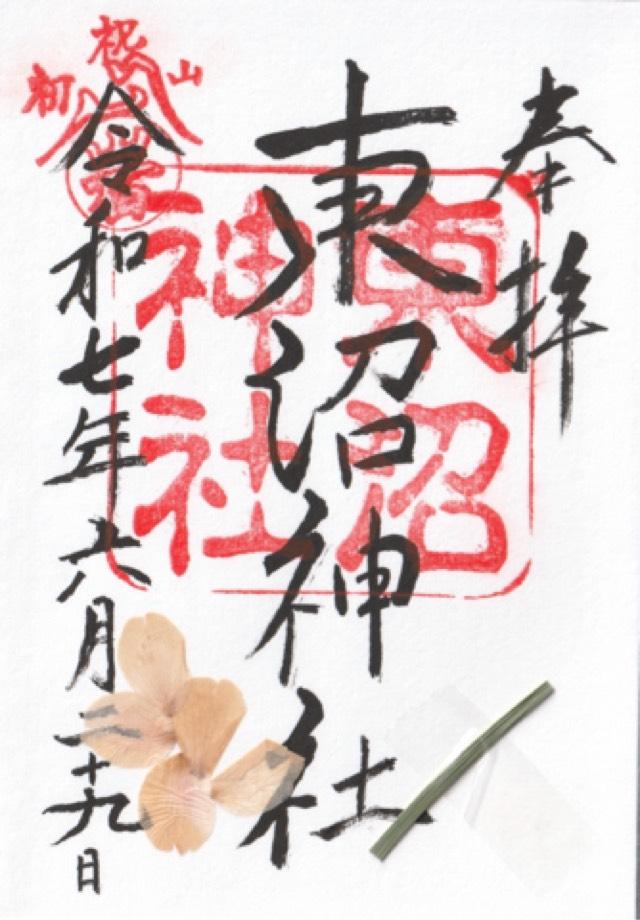 奉拝
東沼神社
令和七年六月二十九日
東沼
神社
祝
初山